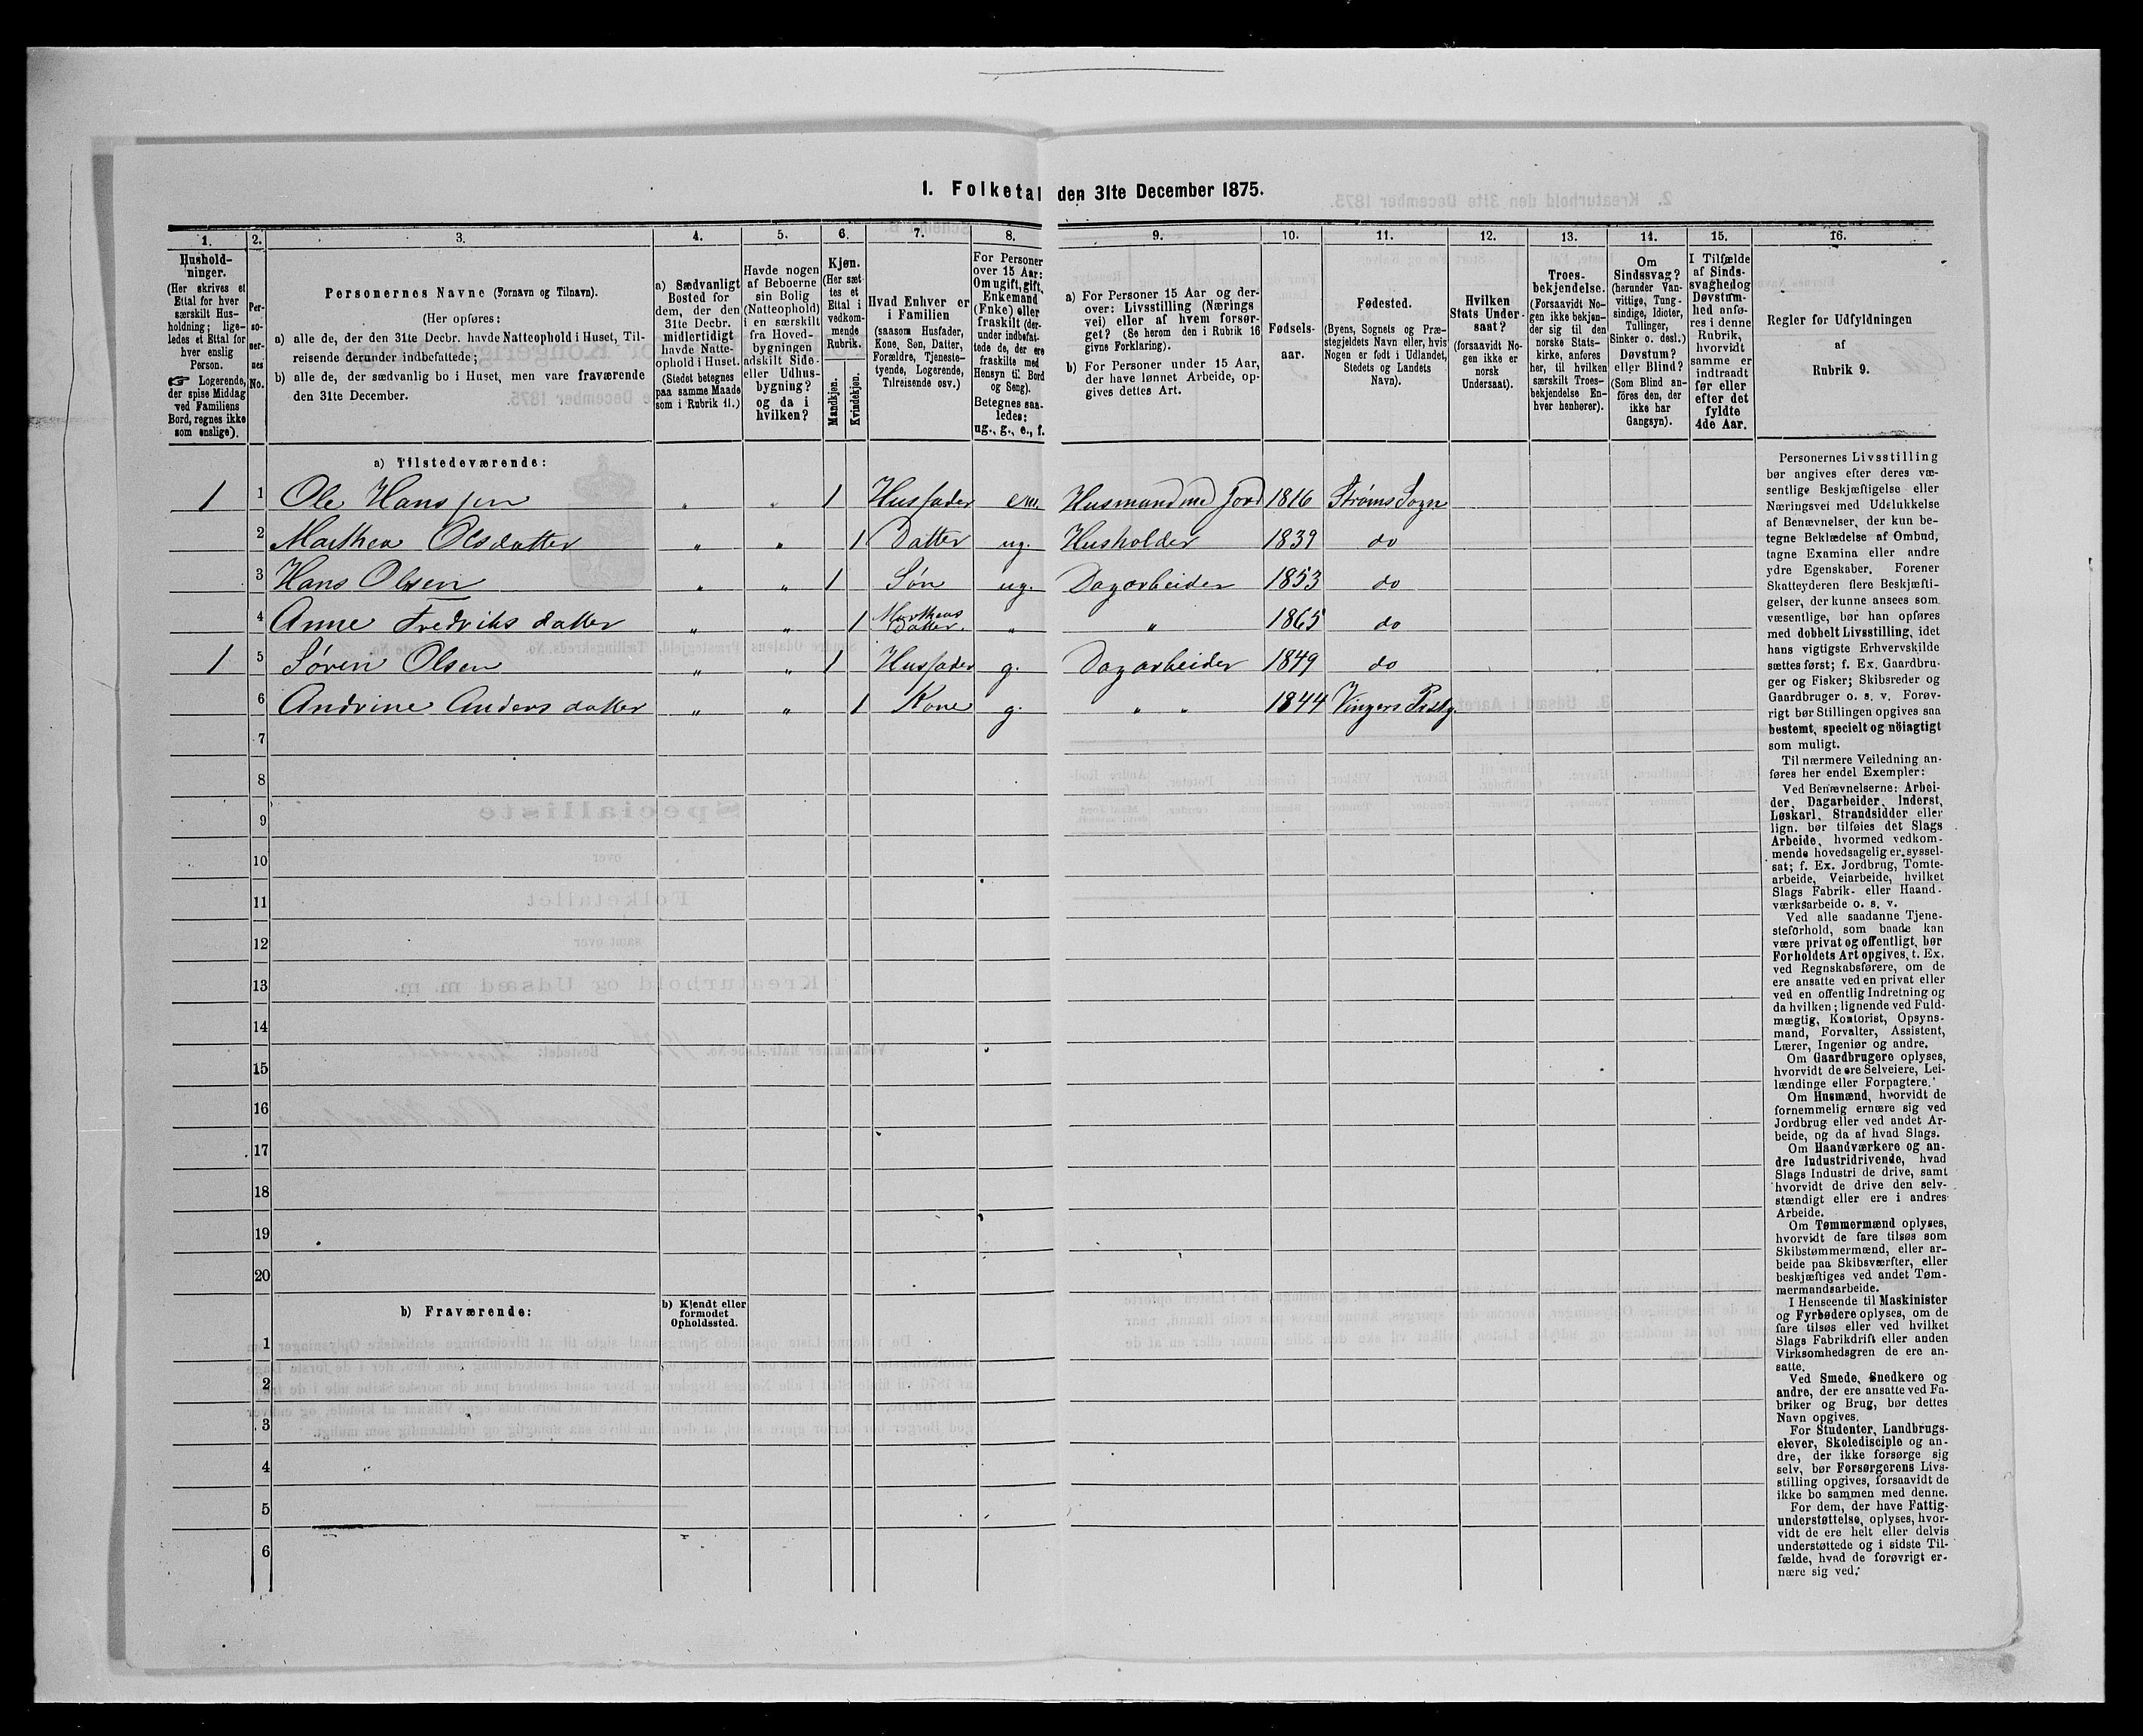 1. Folketal den 31te December 1875.
1. 2. 3. 4. 5. 6. 7. 8. 9. 10. 11. 12. 13. 14. 15. 16.
Hushold-
ninger.
(Her skrives et
Ettal for hver
særskilt Hus-
holdning; lige-
ledes et Ettal for
hver enslig
Person.
☞ Logerende,
der spise Middag
ved Familiens
Bord, regnes ikke
som enslige).
Per-
so-
ner-
nes
No.
Personernes Navne (Fornavn og Tilnavn).
(Her opføres:
a) alle de, der den 31te Decbr. havde Natteophold i Huset, Til-
reisende derunder indbefattede;
b) alle de, der sædvanlig bo i Huset, men vare fraværende
den 31te December.
a) Sædvanligt
Bosted for
dem, der den
31te Decbr.
midlertidigt
havde Natte-
ophold i Huset.
(Stedet betegnes
paa samme Maade
som i Rubrik 11.)
Havde nogen
af Beboerne
sin Bolig
(Natteophold)
i en særskilt
fra Hoved-
bygningen
adskilt Side-
eller Udhus-
bygning?
og da i
hvilken?
Kjøn.
(Her sæt-
tes et
Ettal i
vedkom-
mende
Rubrik.
Mandkjøn.
Kvindekjøn.
Hvad Enhver er
i Familien
(saasom Husfader,
Kone, Søn, Datter,
Forældre, Tjeneste-
tyende, Logerende,
Tilreisende osv.)
For Personer
over 15 Aar:
Om ugift, gift,
Enkemand
(Enke) eller
fraskilt (der-
under indbefat-
tede de, der ere
fraskilte med
Hensyn til Bord
og Seng).
Betegnes saa-
ledes:
ug., g., e., f.
a) For Personer 15 Aar og der-
over: Livsstilling (Nærings-
vei) eller af hvem forsør-
get? (Se herom den i Rubrik 16
givne Forklaring).
b) For Personer under 15 Aar,
der have lønnet Arbeide, op-
gives dettes Art.
Fødsels-
aar.
Fødested.
(Byens, Sognets og Præ-
stegjeldets Navn eller, hvis
Nogen er født i Udlandet,
Stedets og Landets
Navn).
Hvilken
Stats Under-
saat?
(forsaavidt No-
gen ikke er
norsk
Undersaat).
Troes-
bekjendelse.
(Forsaavidt No-
gen ikke bekjen-
der sig til den
norske Stats-
kirke, anføres
her, til hvilken
særskilt Troes-
bekjendelse En-
hver henhører).
Om
Sindssvag?
(herunder Van-
vittige, Tung-
sindige, Idioter,
Tullinger,
Sinker o. desl.)
Døvstum?
eller Blind?
(Som Blind an-
føres den, der
ikke har
Gangsyn).
I Tilfælde
af Sinds-
svaghed og
Døvstum-
hed anfø-
res i denne
Rubrik,
hvorvidt
samme er
indtraadt
før eller
efter det
fyldte
4de Aar.
Regler for Udfyldningen
af
Rubrik 9.
a) Tilstedeværende:
1 1 Ole Hanssen " " 1 Husfader em. Husmand med Jord 1816 Strøms Sogn
2 Marthea Olsdatter " " 1 Datter ug. Husholder 1839 do
3 Hans Olsen " " 1 Søn ug. Dagarbeider 1853 do
4 Anne Fredriks datter " " 1 Martheas Datter. " " 1865 do
1 5 Søren Olsen " " 1 Husfader g. Dagarbeider 1849 do
6 Andrine Anders datter " " 1 Kone g. " " 1844 Vingers Pstg.
7
8
9
10
11
12
13
14
15
16
17
18
19
20
b) Fraværende:
b) Kjendt eller
formodet
Opholdssted.
1
2
3
4
5
6
Personernes Livsstilling
bør angives efter deres væ-
sentlige Beskjæftigelse eller
Næringsvei med Udelukkelse
af Benævnelser, der kun be-
tegne Beklædelse af Ombud,
tagne Examina eller andre
ydre Egenskaber. Forener
Skatteyderen flere Beskjæfti-
gelser, der kunne ansees som
væsentlige, bør han opføres
med dobbelt Livsstilling, idet
hans vigtigste Erhvervskilde
sættes først; f. Ex. Gaardbru-
ger og Fisker; Skibsreder og
Gaardbruger o. s. v. Forøv-
rigt bør Stillingen opgives saa
bestemt, specielt og nöiagtigt
som muligt.
Til nærmere Veiledning an-
føres her endel Exempler:
Ved Benævnelserne: Arbei-
der, Dagarbeider, Inderst,
Løskarl, Strandsidder eller
lign. bør tilføies det Slags
Arbeide, hvormed vedkom-
mende hovedsagelig er syssel-
sat; f. Ex. Jordbrug, Tomte-
arbeide, Veiarbeide, hvilket
Slags Fabrik- eller Haand-
værksarbeide o. s. v.
Ved alle saadanne Tjene-
steforhold, som baade kan
være privat og offentligt, bør
Forholdets Art opgives, t. Ex.
ved Regnskabsførere, om de
ere ansatte ved en privat eller
ved en offentlig Indretning og
da hvilken; lignende ved Fuld-
mægtig, Kontorist, Opsyns-
mand, Forvalter, Assistent,
Lærer, Ingeniør og andre.
Om Gaardbrugere oplyses,
hvorvidt de ere Selveiere, Lei-
lændinge eller Forpagtere.
Om Husmænd, hvorvidt de
fornemmelig ernære sig ved
Jordbrug eller ved andet Ar-
beide, og da af hvad Slags.
Om Haandværkere og an-
dre Industridrivende, hvad
Slags Industri de drive, samt
hvorvidt de drive den selv-
stændigt eller ere i andres
Arbeide.
Om Tømmermænd oplyses,
hvorvidt de fare tilsøs som
Skibstømmermænd, eller ar-
beide paa Skibsværfter, eller
beskjæftiges ved andet Tøm-
mermandsarbeide.
I Henseende til Maskinister
og Fyrbødere oplyses, om de
fare tilsøs eller ved hvilket
Slags Fabrikdrift eller anden
Virksomhedsgren de ere an-
satte.
Ved Smede, Snedkere og
andre, der ere ansatte ved Fa-
briker og Brug, bør dettes
Navn opgives.
For Studenter, Landbrugs-
elever, Skoledisciple og an-
dre, der ikke forsørge sig
selv, bør Forsørgerens Livs-
stilling opgives, forsaavidt de
ikke bo sammen med denne.
For dem, der have Fattig-
understøttelse, oplyses, hvor-
vidt de ere helt eller delvis
understøttede og i sidste Til-
fælde, hvad de forøvrigt er-
nære sig ved.